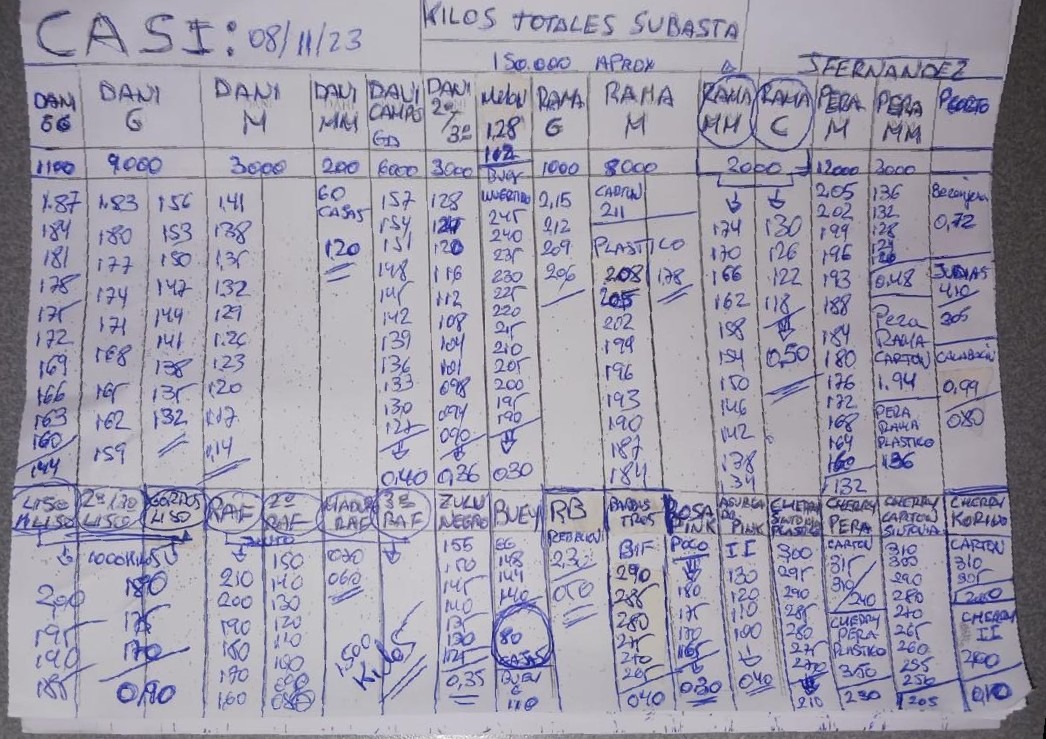 CASI: 08/11/23
KILOS TOTALES SUBASTA
150.000 APROX
JFERNANDEZ
DANI GG
DANI G
DANI M
DANI MM
DANI CAMPO GD
DANI 2ª/3ª
Melon 1,28
1,02
RAMA G
RAMA M
RAMA MM
RAMA C
PERA M
PERA MM
1100
9000
3000
200
6000
3000
1000
8000
2000
12000
3000
1.87
184
181
178
175
172
169
166
163
160
144
1.83
180
177
174
171
168
165
162
159
156
153
150
147
144
141
138
135
132
1.41
138
1,35
132
129
1.26
1.23
120
1,17
1,14
60 CAJAS
1,20
157
154
151
148
145
142
139
136
133
130
127
0,40
128
124
120
116
112
108
104
101
098
094
090
0,36
BUEY
INVERTIDO
245
240
235
230
225
220
215
210
205
200
195
190
030
2,15
212
209
206
CARTON
211
PLASTICO
208
205
202
199
196
193
190
187
184
1,78
174
170
166
162
158
154
150
146
142
138
134
130
126
122
118
0,50
205
202
199
196
193
188
184
180
176
172
168
164
160
132
136
132
128
124
120
0,48
Pera
RAMA
CARTON
1.94
PERA
RAMA
PLASTICO
136
Berenjena
0,72
JUDIAS
410
305
CALABACIN
0,99
080
LISO
ALISO
2ª
LISO
GORDOS
LISO
10000 KILOS
200
195
190
185
180
175
170
0,90
RAF
210
200
190
180
170
160
2ª
RAF
JUNTO
150
140
130
120
110
100
090
080
MADUR
RAF
070
060
1,500
KILOS
3ª
RAF
ZULU
NEGRO
155
150
145
140
135
130
125
0,35
BUEY
GG
148
144
140
80
CAJAS
BUEY
G
110
RB
2,30
050
BIF
290
285
280
275
270
265
040
ROSA
PINK
POCO
180
175
170
165
0.30
PINK
II
130
120
110
100
040
CHERRY
SINTONIA
PLASTICO
300
295
290
285
280
275
270
210
CHERRY
PERA
CARTON
315
310
240
CHERRY
PERA
PLASTICO
350
230
CHERRY
CARTON
SINTONIA
310
300
290
280
270
265
260
255
250
205
CHERRY
KORINO
CARTON
310
305
200
CHERRY
II
200
0,10